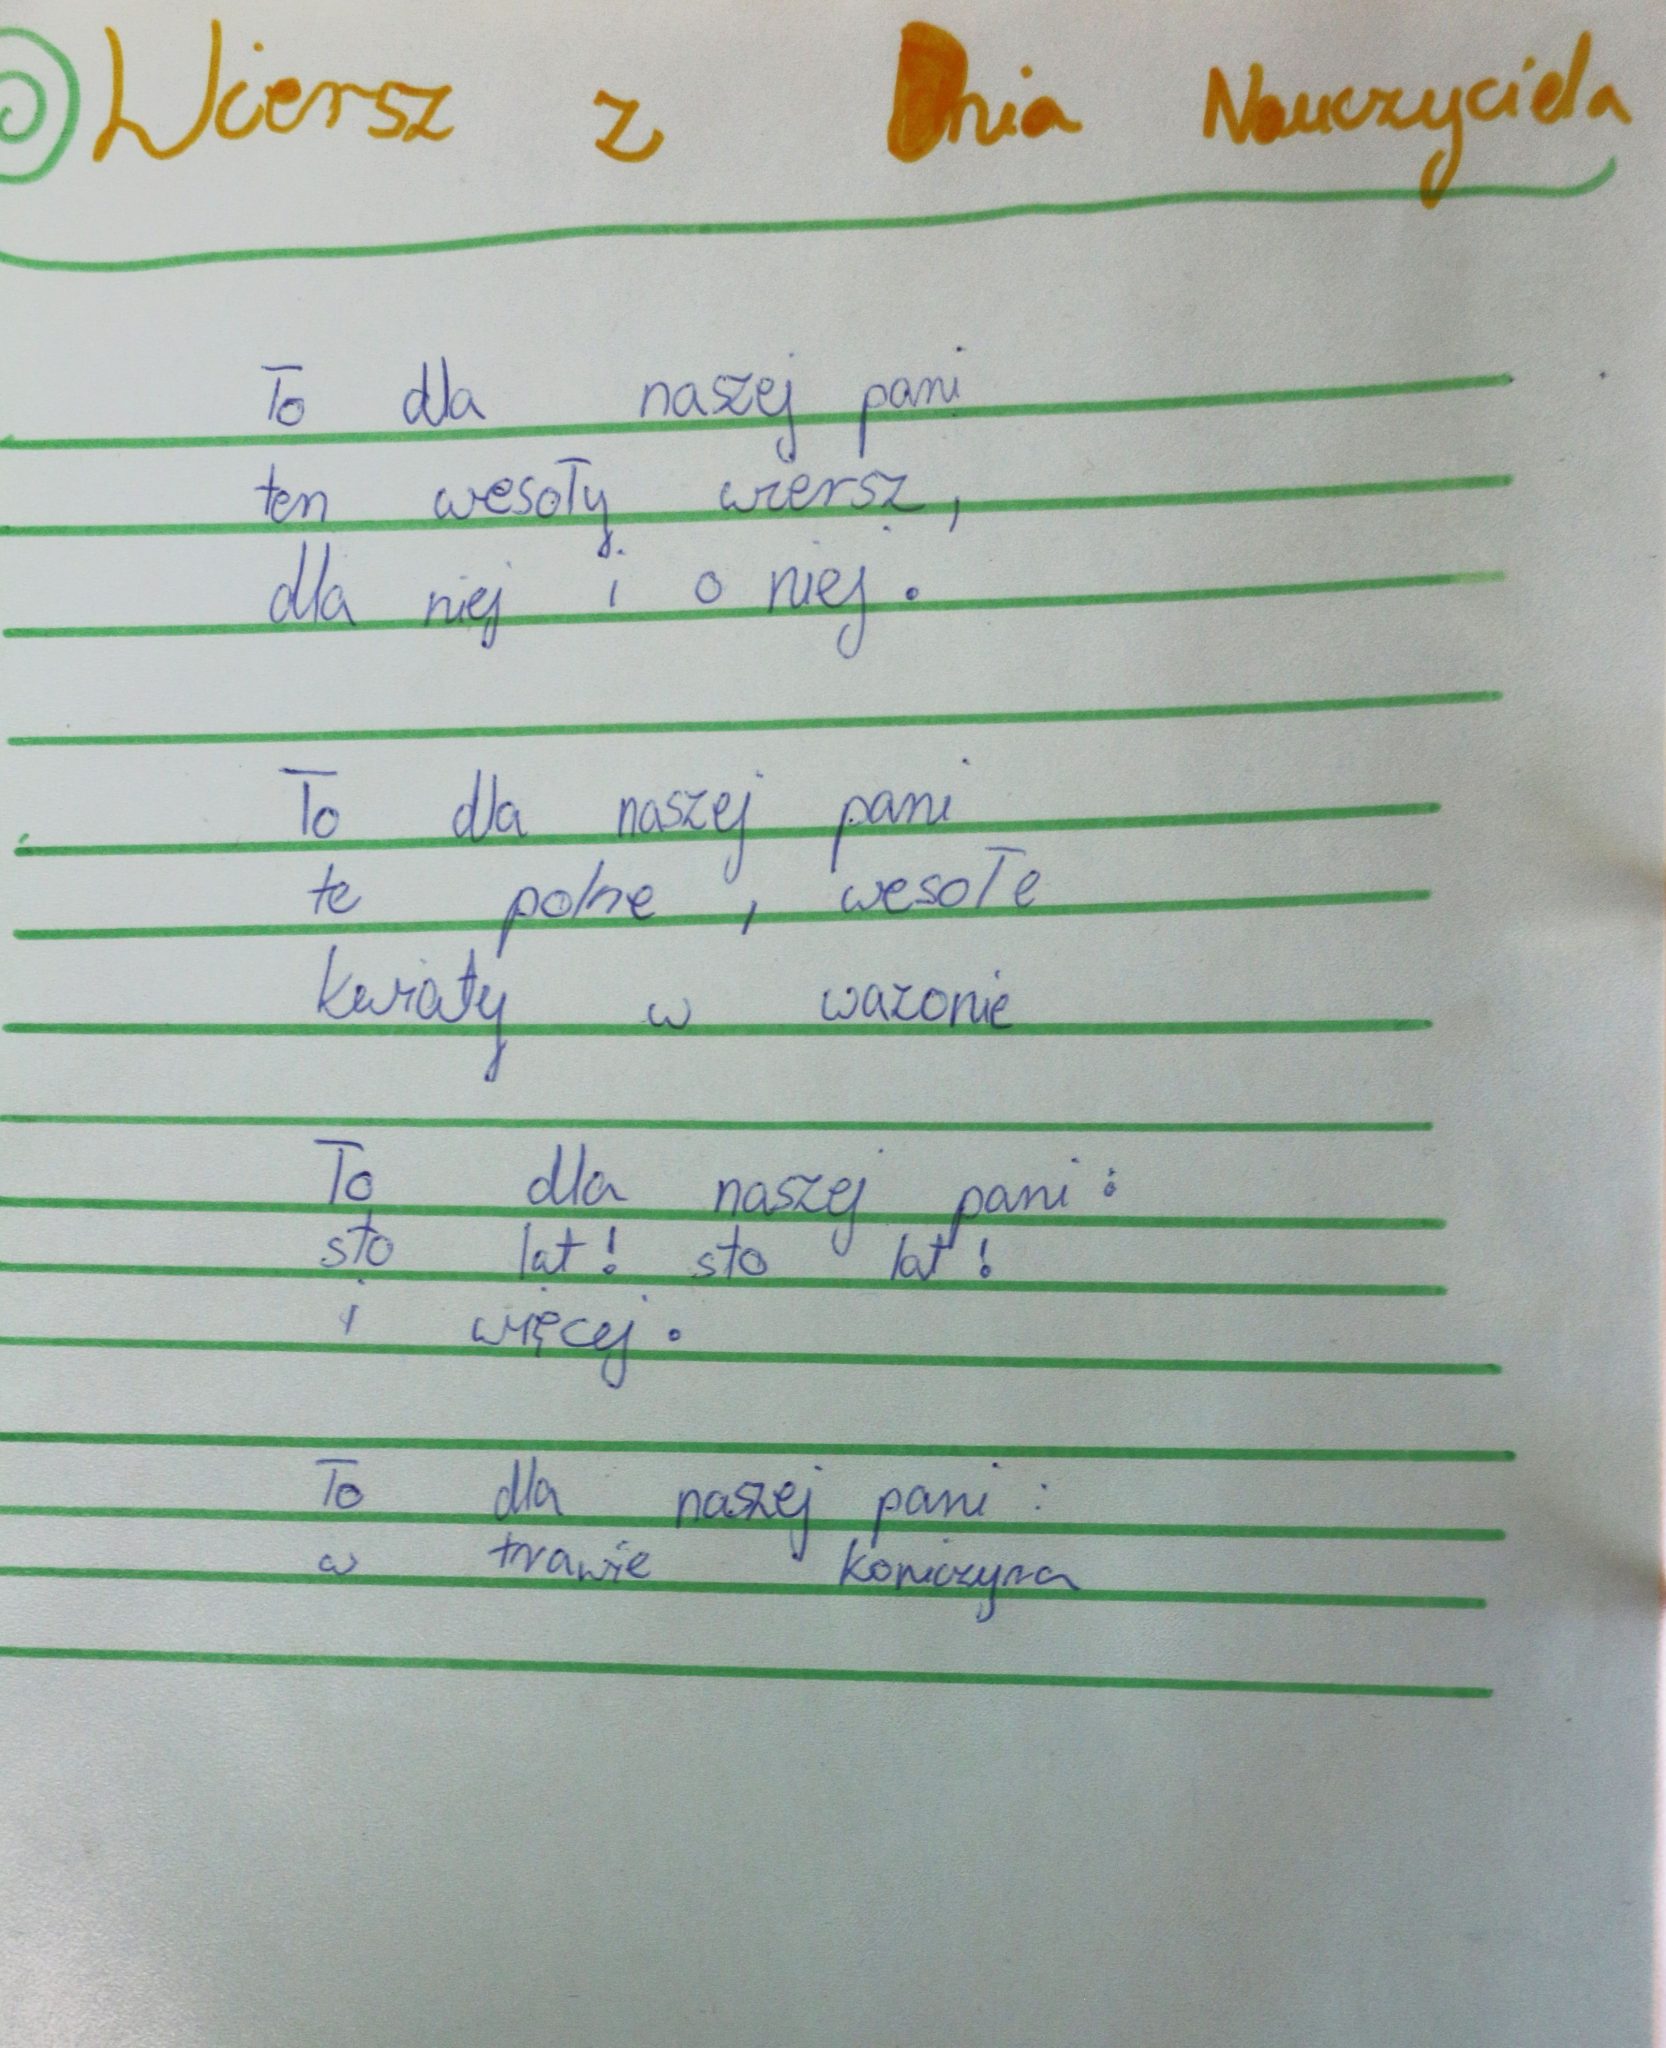 Wiersz z Dnia Nauczyciela
To dla naszej pani
ten wesoły wiersz,
dla niej i o niej.
To dla naszej pani
te polne, wesołe
kwiaty w wazonie
To dla naszej pani:
sto lat! sto lat!
i więcej.
To dla naszej pani:
w trawie koniczyna